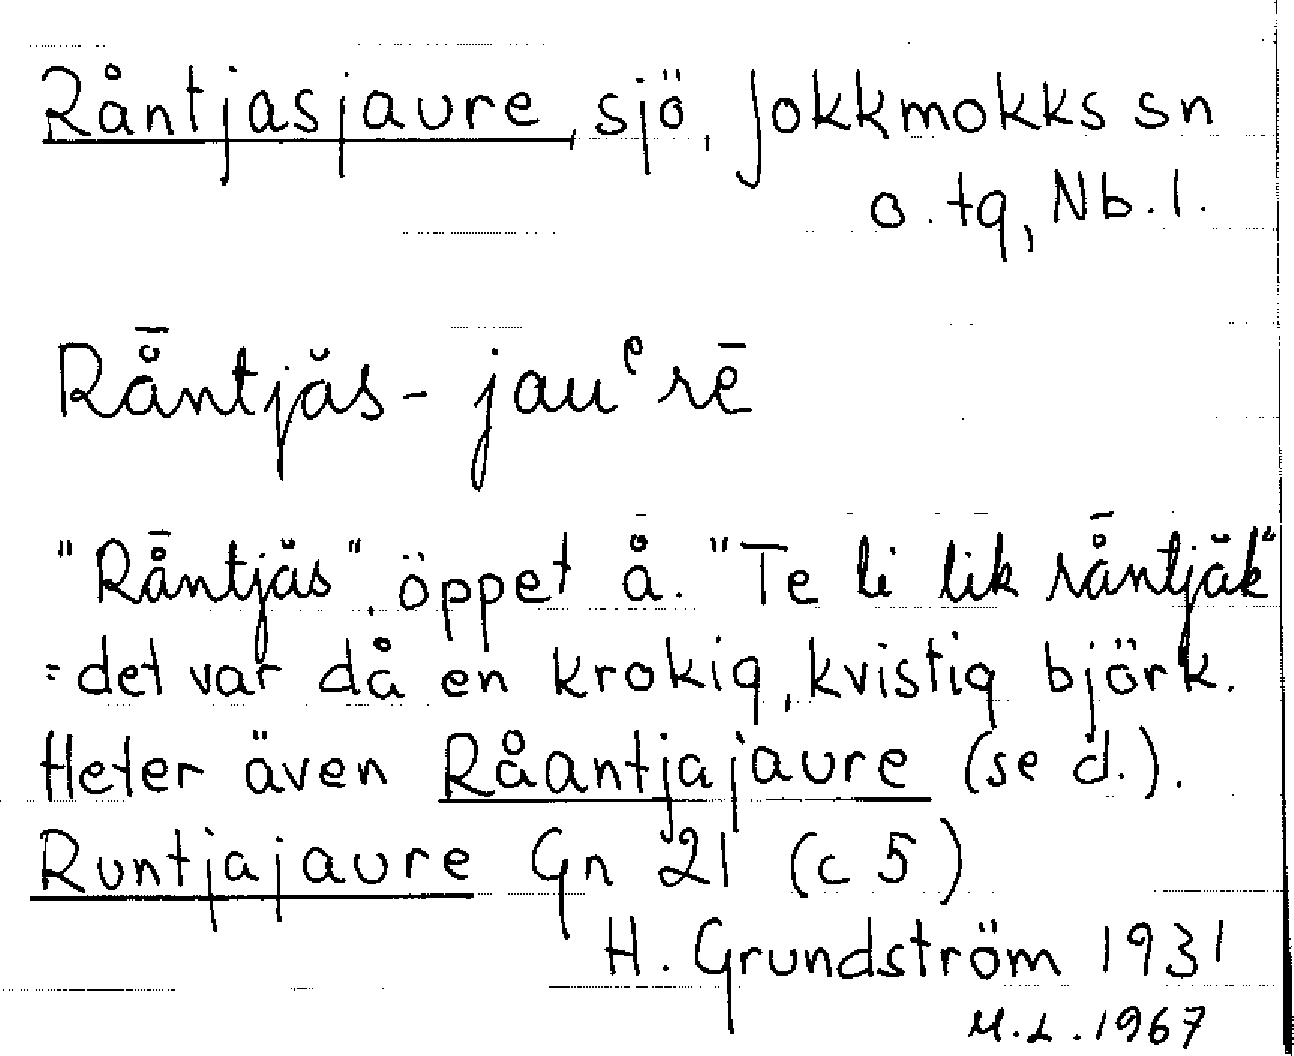 Råntjasjaure, sjö, Jokkmokks sn
o. tg, Nb. l.
Rå̄ntjăs- jauᵉrē
"Rå̄ntjăs", öppet å. "Te li lik rå̄ntjăk"
= det var då en krokig, kvistig björk.
Heter även Råantjajaure (se d.).
Runtjajaure Gn 21 (c 5)
H. Grundström 1931
M.L. 1967